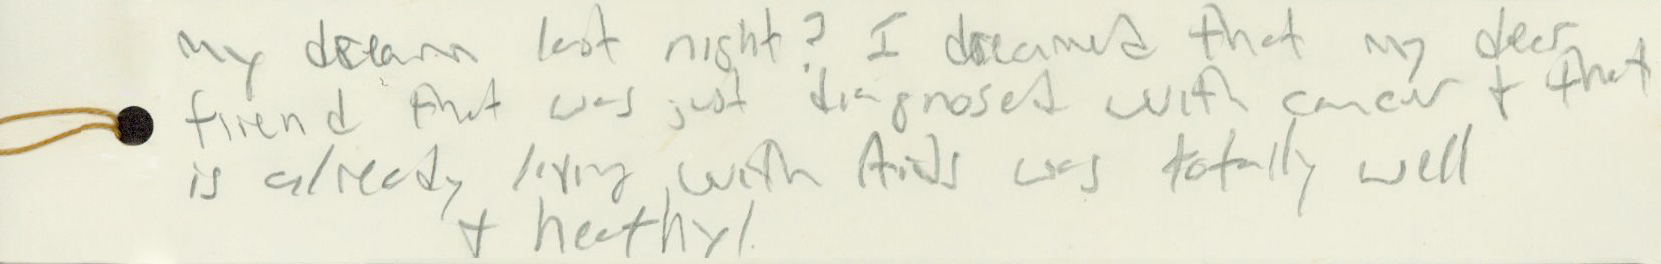 my dream last night? I dreamed that my dear
friend that was just diagnosed with cancer + that
is already living with Aids was totally well
+ heathy!